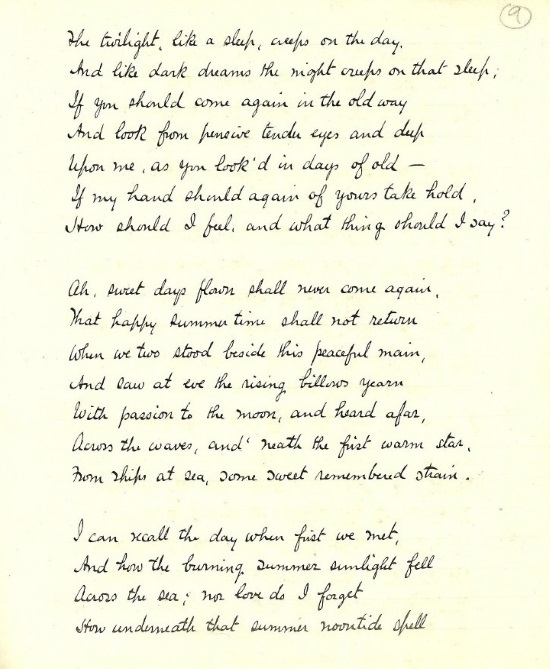 9
The twilight, like a sleep, creeps on the day.
And like dark dreams the night creeps on that sleep;
If you should come again in the old way
And look from pensive tender eyes and deep
Upon me, as you look'd in days of old —
If my hand should again of yours take hold,
How should I feel, and what thing should I say?
Ah, sweet days flown shall never come again,
That happy summer time shall not return
When we two stood beside this peaceful main,
And saw at eve the rising billows yearn
With passion to the moon, and heard afar,
Across the waves, and 'neath the first warm star,
From ships at sea, some sweet remembered strain.
I can recall the day when first we met,
And how the burning summer sunlight fell
Across the sea; nor love do I forget
How underneath that summer noontide spell